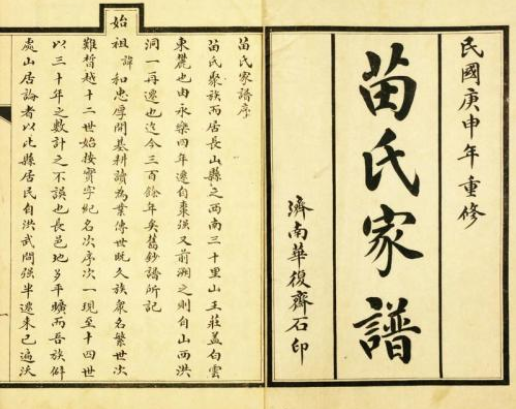 民國庚申年重修
苗氏家譜
濟南華復齋石印
苗氏家譜序
苗氏聚族而居長山縣之西南三十里山王莊蓋白雲
東麓也由永樂四年遷自棗强又前溯之則自山西洪
洞一再遷也迄今三百餘年矣舊鈔譜所記
始祖諱和忠厚開基耕讀為業傳世既久族衆名繁世次
難晳越十二世始按實字紀名次序次一現至十四世
以三十年之數計之不誤也長邑地多平曠而吾族僻
處山居論者以此縣居民自洪武間强半遷來已遍沃